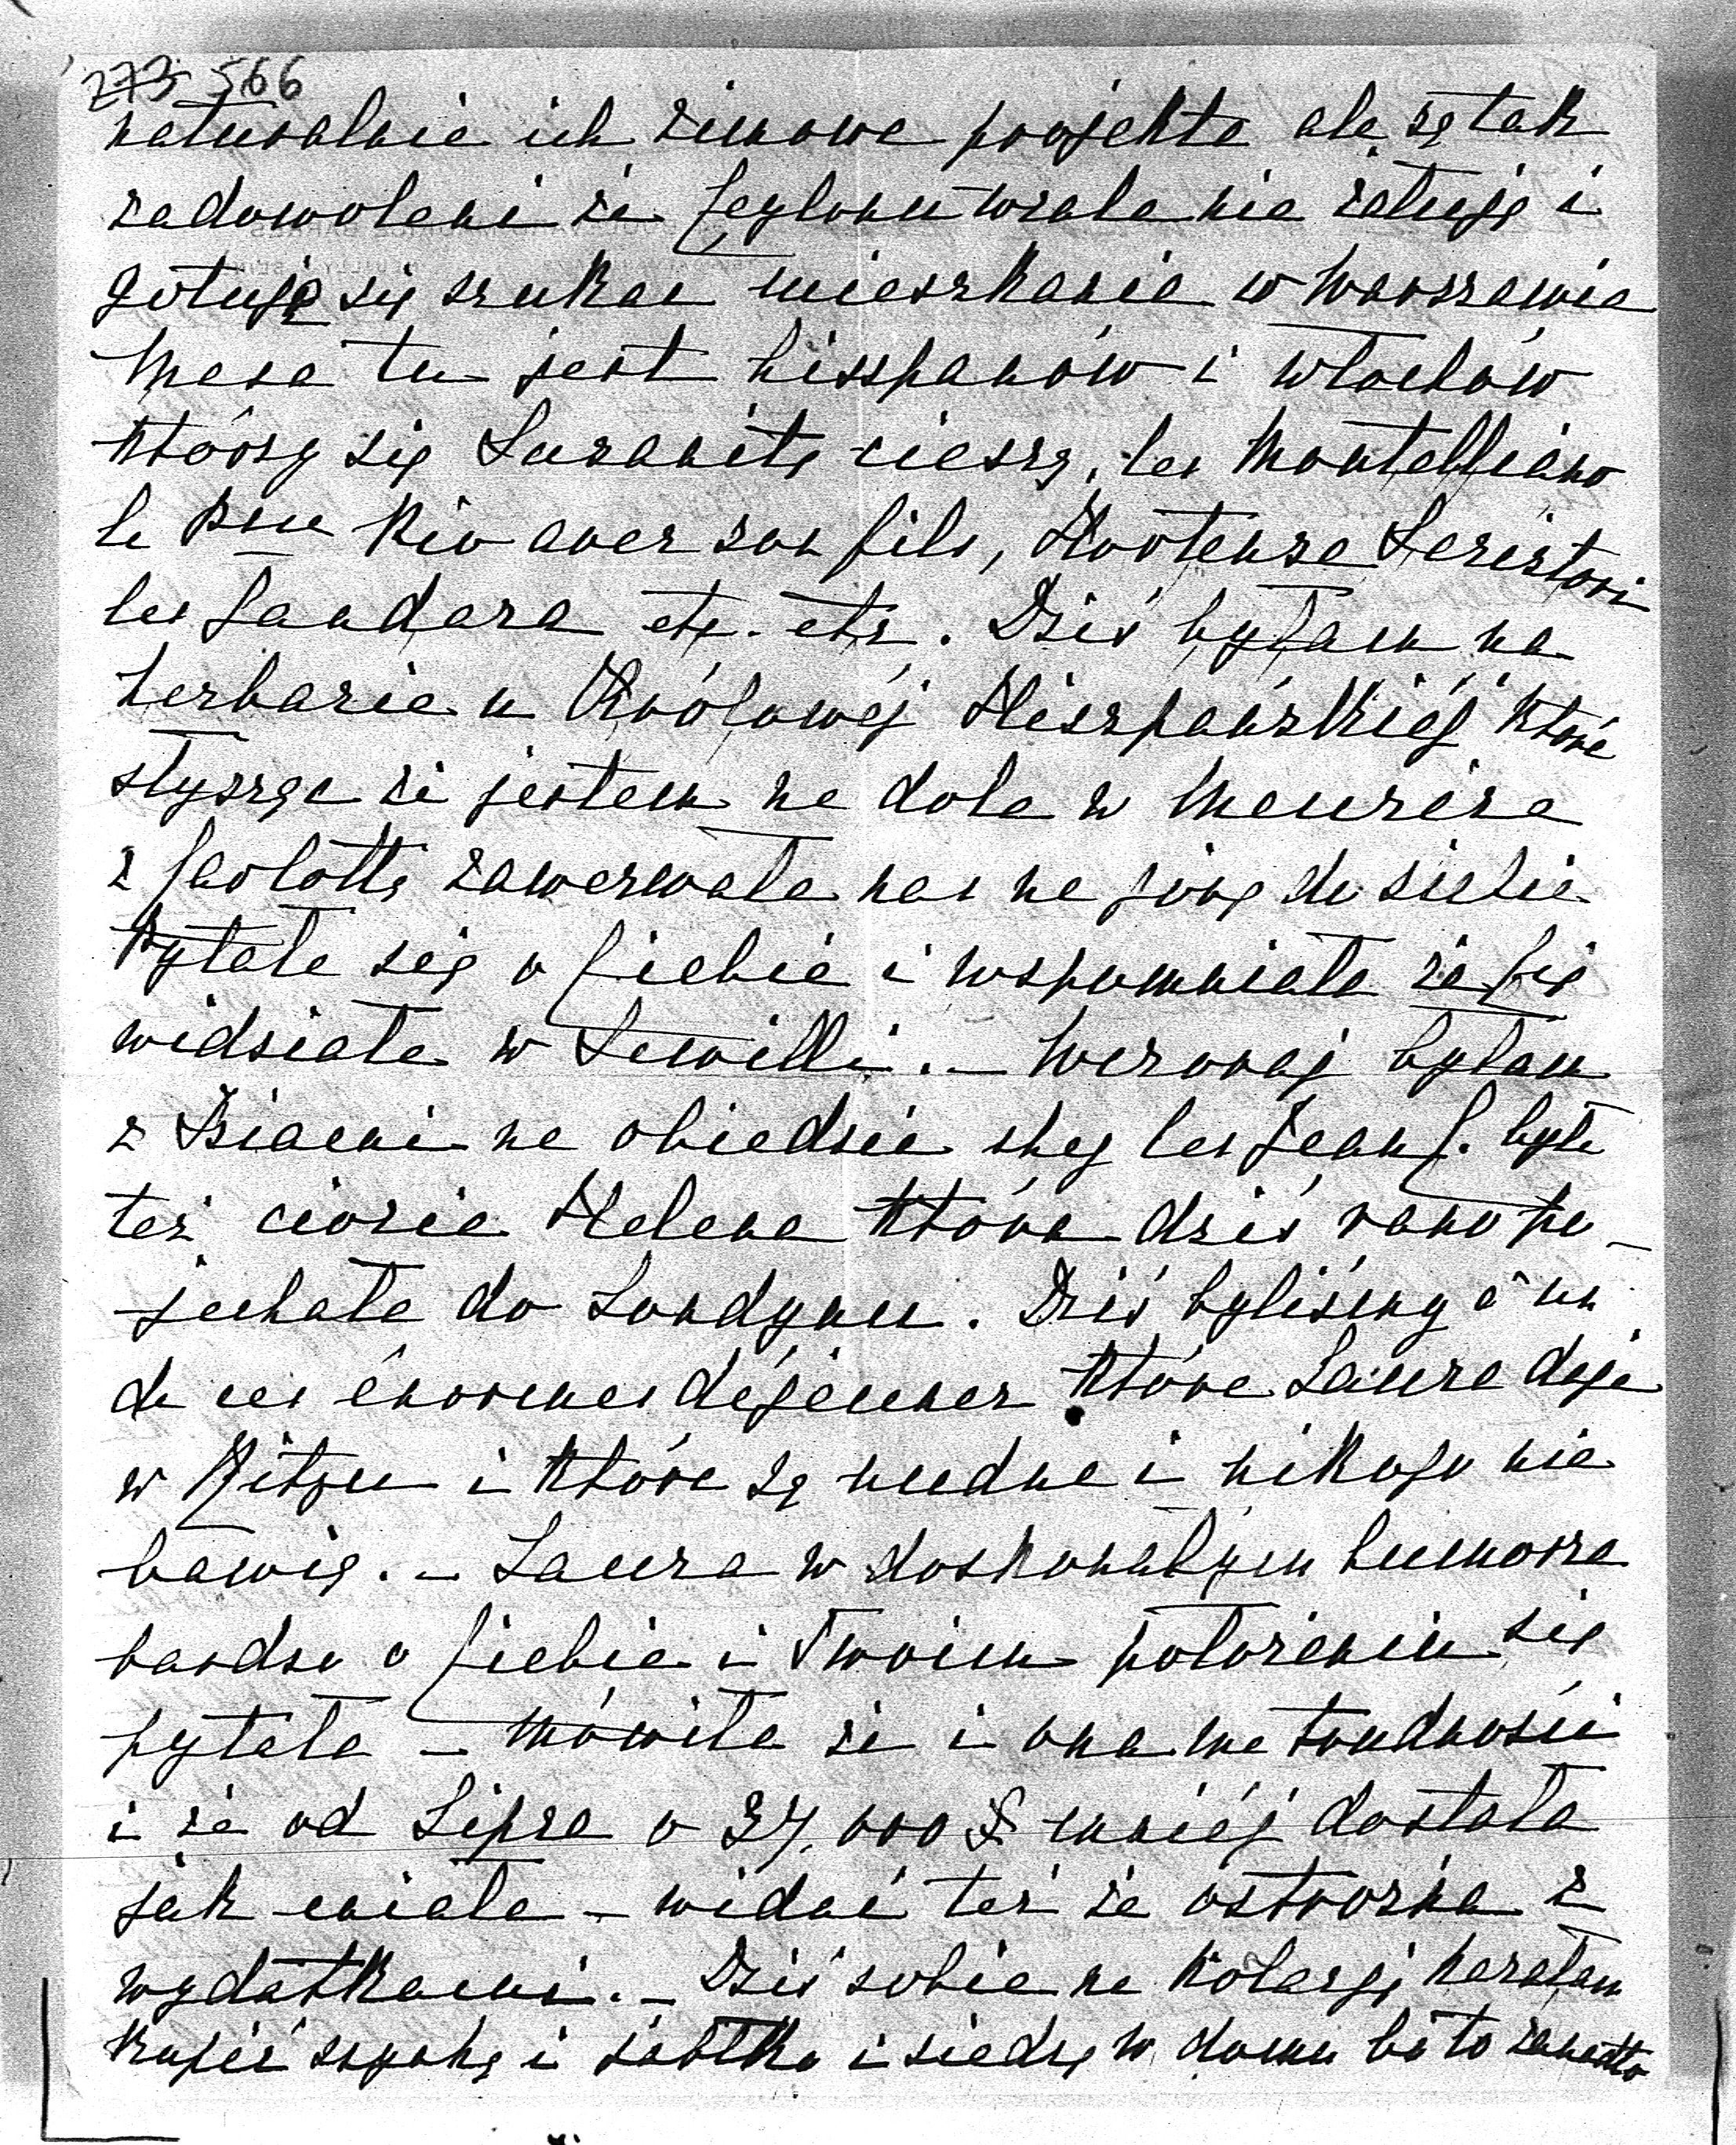 273 566
naturalnie ich zimowe projekta ale są tak
zadowoleni że Ceylonu wcale nie żałują i
gotują się szukać mieszkania w Warszawie
Masa tu jest hiszpanów i włochów
którzy się cieszą, les Montelliano
le Rio avec son fils, Hortense
les Landara etc. etc. Dziś byłam na
herbacie u Królowéj Hiszpańskiéj które
słysząc że jestem na dole w Meurice
z Carlottą zawezwała nas na górę do siebie
Pytała się o Ciebie i wspomniała że Cię
widziała w Sewilli. – Wczoraj byłam
z Dziećmi na obiedzie chez les Jean C. była
też ciocia Helena która dziś rano po-
jechała do Londynu. Dziś byliśmy à un
de ces énormes déjeuner które Laura daje
w Ritzu i które są nudne i nikogo nie
bawią. – Laura w doskonałym humorze
bardzo o Ciebie i Twoim położeniu się
pytała – Mówiła że i ona ma trudności
i że od Lipca o 37,000 mniéj dostała
jak miała – widać też że ostrożna z
wydatkami. – Dziś sobie na kolację kazałam
kupić szynkę i jabłka i siedzę w domu bo to